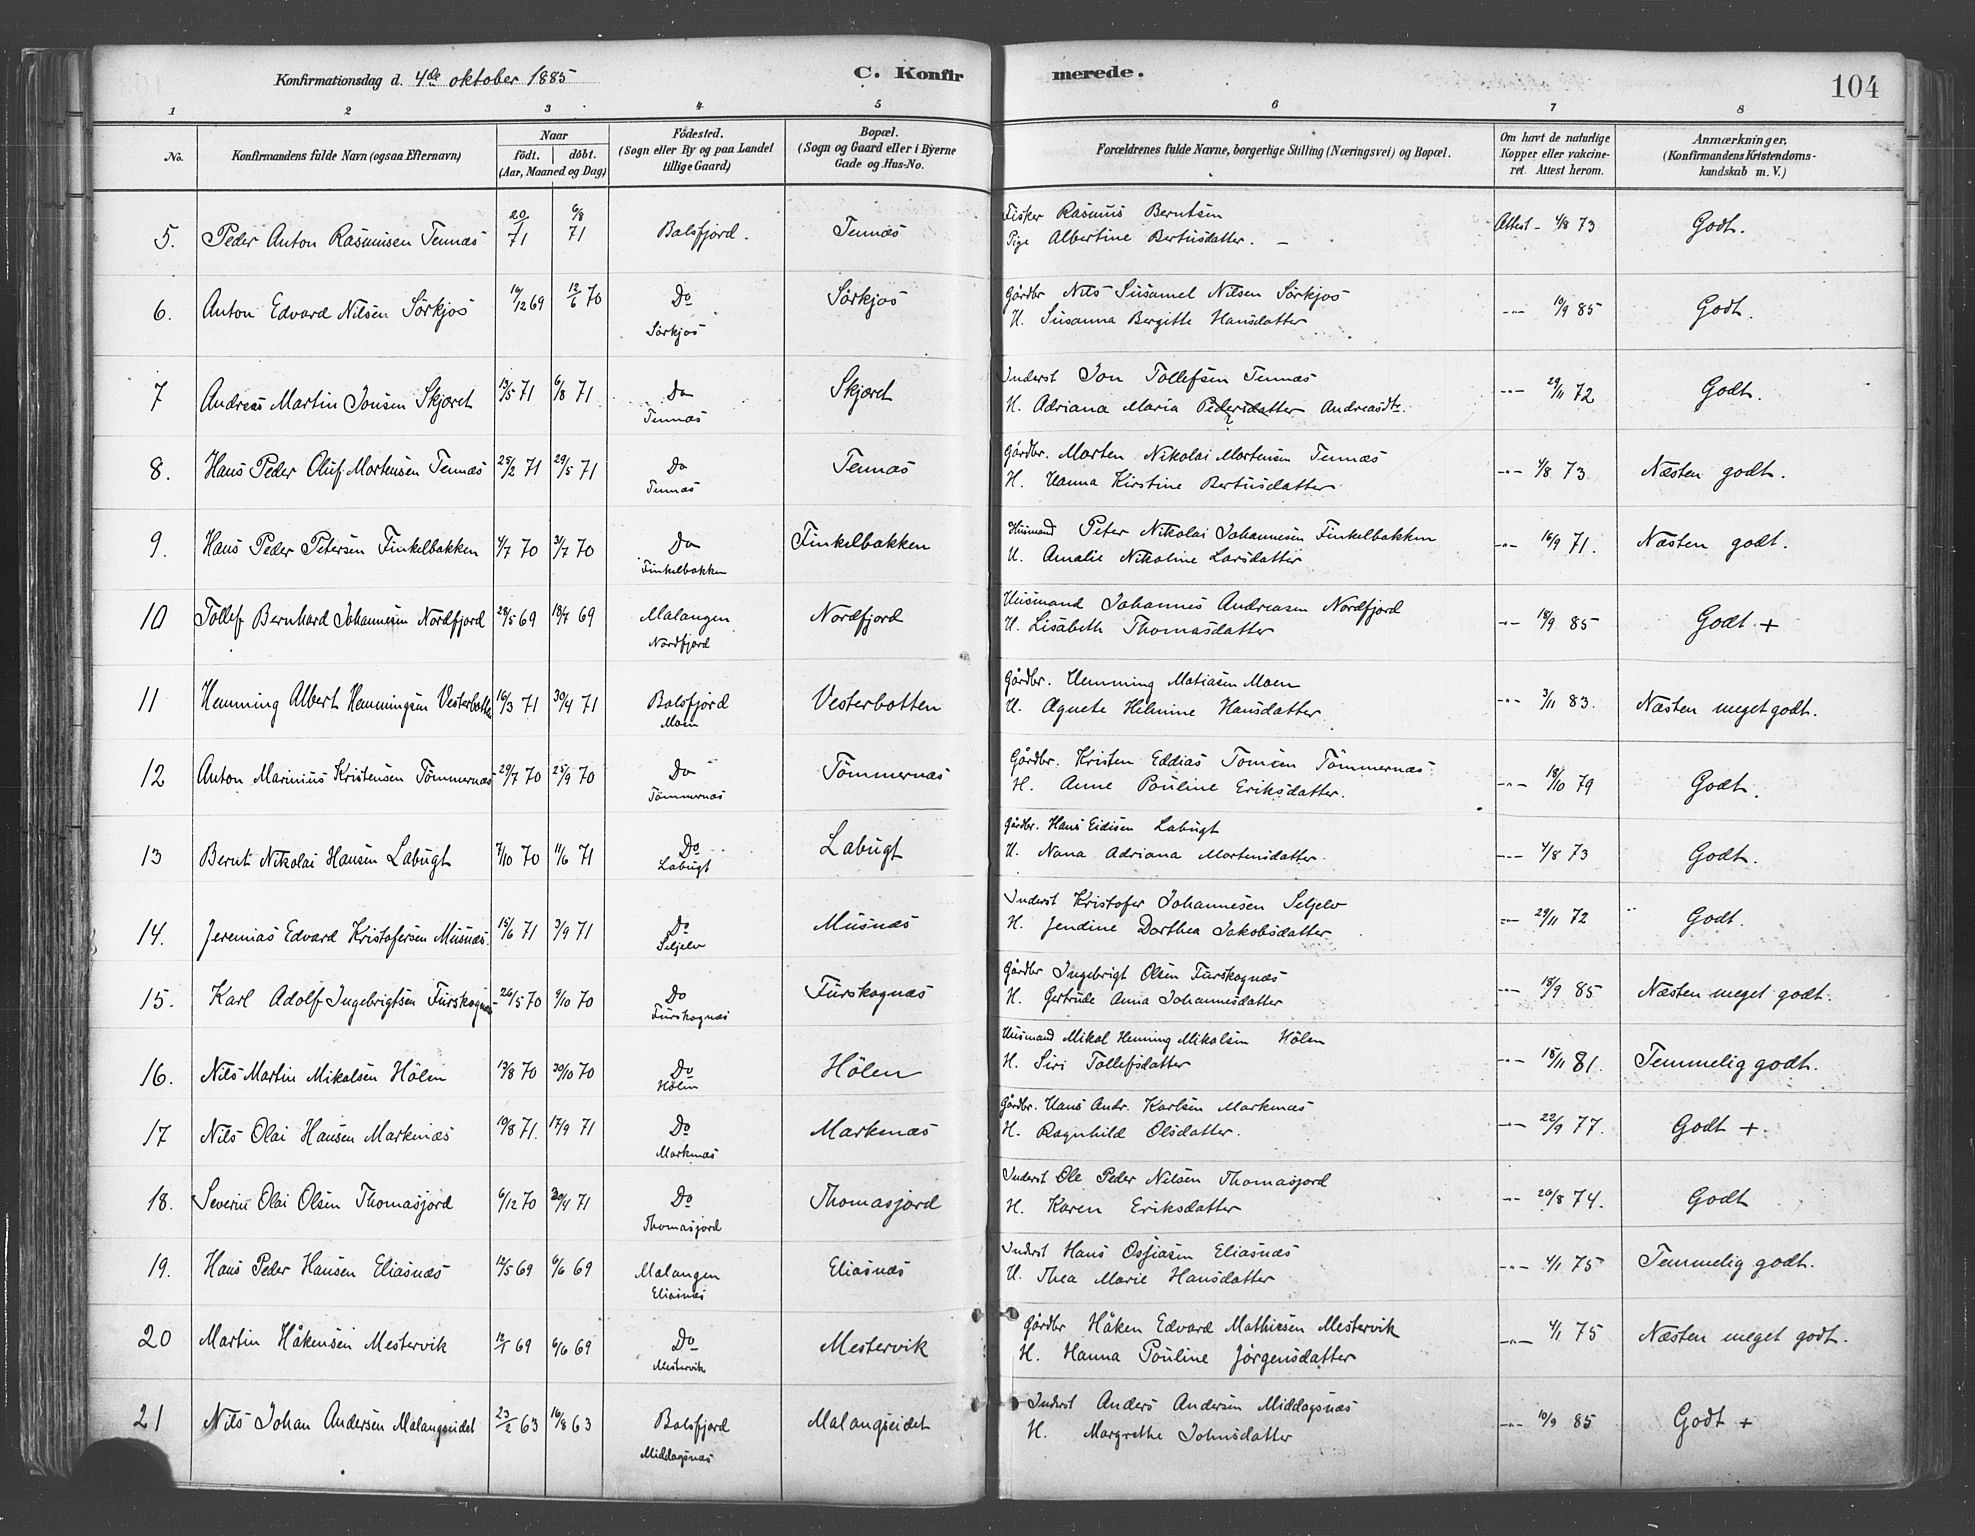 Konfirmationsdag d. 4de oktober 1885
C. Konfirmerede.
104
1 2 3 4 5 6 7 8
No.
Konfirmandens fulde Navn (ogsaa Efternavn)
Naar
födt. döbt.
(Aar, Maaned og Dag)
Födested.
(Sogn eller By og paa Landet
tillige Gaard)
Bopæl.
(Sogn og Gaard eller i Byerne
Gade og Hus-No.
Forældrenes fulde Navne, borgerlige Stilling (Næringsvei) og Bopæl.
Om havt de naturlige
Kopper eller vakcine-
ret. Attest herom.
Anmærkninger.
(Konfirmandens Kristendoms-
kundskab m. V.)
5. Peder Anton Rasmusen Tennæs 20/1 71 6/8 71 Balsfjord. Tennæs Fisker Rasmus Berntsen Attest - 4/8 73 Godt.
Pige Albertine Bertusdatter. -
6. Anton Edvard Nilsen Sörkjos 16/12 69 12/6 70 Do Sörkjos Gårdbr Nils Susamel Nilsen Sörkjos -"- 10/9 85 Godt.
Sörkjos H. Susanna Bergitte Hansdatter
7 Andreas Martin Jonsen Skjæret 13/5 71 6/8 71 Do Skjæret Inderst Jon Tollefsen Tennæs -"- 29/11 72 Godt.
Tennæs H. Adriana Maria Pedersdatter Andreasdtr.
8. Hans Peder Oluf Mortensen Tennæs 25/2 71 29/5 71 Do Tennæs Gårdbr. Morten Nikolai Mortensen Tennæs -"- 4/8 73 Næsten godt.
Tennæs H. Hanna Kirstine Bertusdatter
9. Hans Peder Petersen Finkelbakken 4/7 70 31/7 70 Do Finkelbakken Husmand Peter Nikolai Johannesen Finkelbakken -"- 16/9 71. Næsten godt.
Finkelbakken H. Amalie Nikoline Larsdatter
10 Tollef Bernhard Johannesen Nordfjord 28/5 69 18/7 69 Malangen Nordfjord Husmand Johannes Andreasen Nordfjord -"- 18/9 85 Godt +
Nordfjord H. Lisabeth Thomasdatter
11 Hemming Albert Hemmingsen Vesterbotten 16/3 71 30/4 71 Balsfjord Vesterbotten Gårdbr. Hemming Matiasen Moen -"- 3/11 83. Næsten meget godt.
Moen H. Agnete Helmine Hansdatter
12 Anton Marinius Kristensen Tömmernæs 29/7 70 25/9 70 Do Tömmernæs Gårdbr. Kristen Eddias Tomsen Tömmernæs -"- 18/10 79 Godt.
Tömmernæs H. Anne Pauline Eriksdatter.
13 Bernt Nikolai Hansen Labugt 7/10 70 11/6 71 Do Labugt Gårdbr. Hans Eidisen Labugt -"- 4/8 73 Godt.
Labugt H. Nana Adriana Mortensdatter
14. Jeremias Edvard Kristofersen Musnæs. 15/6 71 3/9 71 Do Musnæs Inderst Kristofer Johannesen Seljelv -"- 29/11 72 Godt.
Seljelv H. Jendine Dorthea Jakobsdatter
15. Karl Adolf Ingebrigtsen Furskognæs 26/5 70 9/10 70 Do Furskognæs Gårdbr Ingebrigt Olsen Furskognæs -"- 18/9 85 Næsten meget godt.
Furskognæs H. Gertrude Anna Johannesdatter
16. Nils Martin Mikalsen Hölen 13/8 70 30/10 70 Do Hölen Husmand Mikal Heming Mikalsen Hölen -"- 15/11 81. Temmelig godt.
Hölen H. Siri Tollefsdatter
17 Nils Olai Hansen Markenæs 19/8 71. 17/9 71 Do Markenæs Gårdbr. Hans Andr. Karlsen Markenæs -"- 22/9 77. Godt +.
Markenæs H. Ragnhild Olsdatter.
18. Severin Olai Olsen Thomasjord 6/12 70 30/4 71 Do Thomasjord Inderst Ole Peder Nilsen Thomasjord -"- 26/8 74. Godt
Thomasjord H. Karen Eriksdatter
19. Hans Peder Hansen Eliasnæs 12/5 69 6/6 69 Malangen Eliasnæs Inderst Hans Ossiasen Eliasnæs -"- 4/1 75 Temmelig godt.
Eliasnæs H. Thea Marie Hansdatter
20 Martin Håkensen Mestervik 69 6/6 69 Do Mestervik Gårdbr Håken Edvard Mathiesen Mestervik -"- 4/1 75 Næsten meget godt.
Mestervik H. Hanna Pouline Jörgensdatter
21 Nils Johan Andersen Malangseidet 23/2 63 16/8 63 Balsfjord Malangseidet Inderst Anders Andersen Middagsnæs -"- 10/9 85 Godt +
Middagsnæs H. Margrethe Johnsdatter